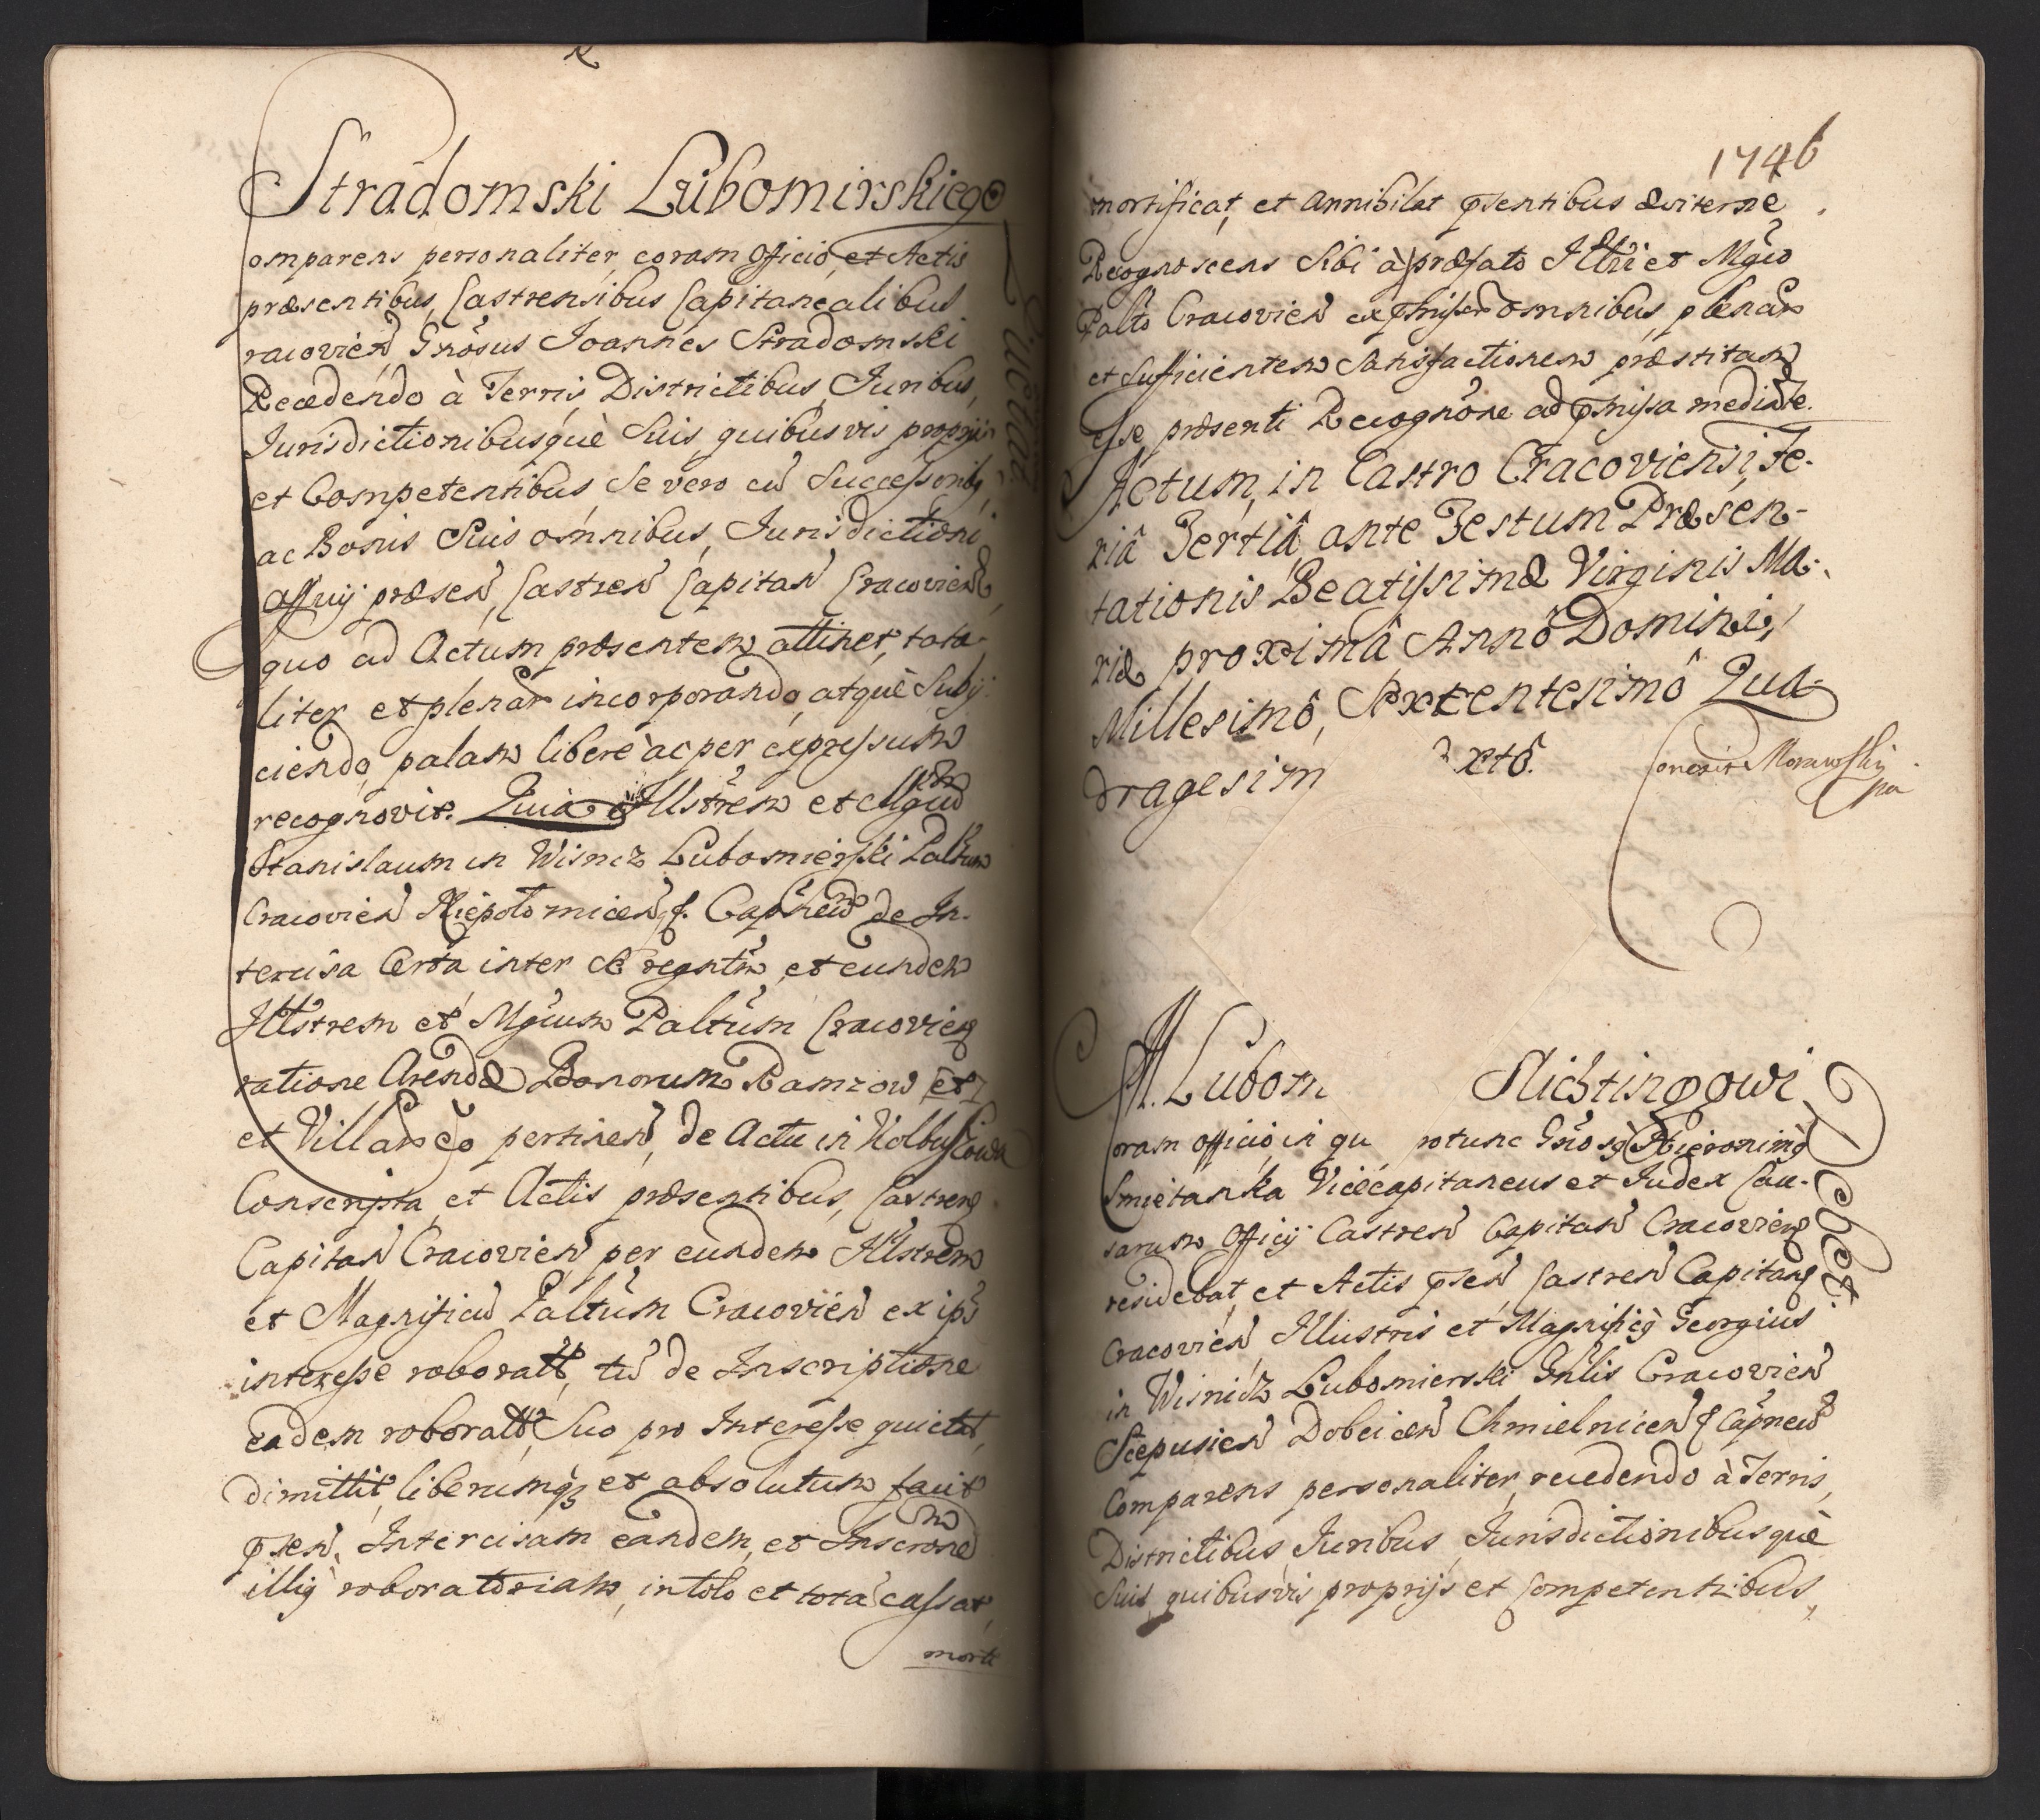 Stradomski Lubomirskiego
Quietat
omparens personaliter coram Officio et Actis
præsentibus Castrensibus Capitanealibus
racovień Gnosus Joannes Stradomski
Recedendo à Terris Districtibus, Juribus,
Jurisdictionibusquè Suis quibusvis proprijs
et Competentibus, Se vero cū Successoribꝫ
ac Bonis Suis omnibus, Jurisdictioni
Officij præseń, Castreń Capitań Cracovień,
quo ad Actum præsentem attinet, tota-
liter et plenar incorporando, atquè Subij-
ciendo, palam libere ac per expressum
recognovit. Quia Illstrem et Mgcum
Stanislaum in Wisnicz Lubomierski Palttum
Cracovień Niepołomiceń ꝭ. Capneum de In-
tercisa Certa inter Se regntm, et eundem
Illstrem et Mgcum Paltum Cracovień
ratione Arendæ Bonorum Ramzow et
et Villar eo pertineń, de Actu in Kolbuszowa
Conscripta, et Actis præsentibus, Castreń
Capitań Cracovień per eundem Illstrem
et Magnificū Paltum Cracovień ex ips
interesse roboratt, tū de Inscriptione
eadem roboratt Suo pro Interesse quietat,
dimittit, liberumqꝫ et absolutum facit
pseń, Intercisam eandem, et Inscronem
illiꝰ roboratoriam, in toto et tota cassat,
morti
1746
mortificat, et annihilat pſentibus æviterne
Recognoscens Sibi à præfato Illri et Mgco
Palto Cracovień ex pmissis omnibus, plenar
et Sufficientem Satisfactionem præstitam
esse, præsenti Recognone ad pmissa mediate.
Actum, in Castro Cracoviensi, Fe-
riâ Tertiâ ante Festum Præsen-
tationis Beatissimæ Virginis Ma-
riæ proximâ Annô Domini,
Millesimô, Sexcentesimô Qua-
dragesim xtô.
Correxit Morawski
mpa
M. Lubom Slichtingowi
Debet
Coram officio, in qu rotunc Gnosꝰ Hieronimꝰ
Smietanka Vicecapitaneus et Judex Cau-
sarum Officij Castreń Capitań Cracovień
residebat, et Actis pseń Castreń Capitań
Cracovień, Illustris et Magnificꝰ Georgius
in Wisnicz Lubomierski Gnlis Cracovień
Scepusień Dobciceń Chmielniceń ꝭ Capneus
Comparens personaliter, recedendo à Terris,
Districtibus, Juribus, Jurisdictionibusquè
Suis quibusvis proprijs et Competentibus,